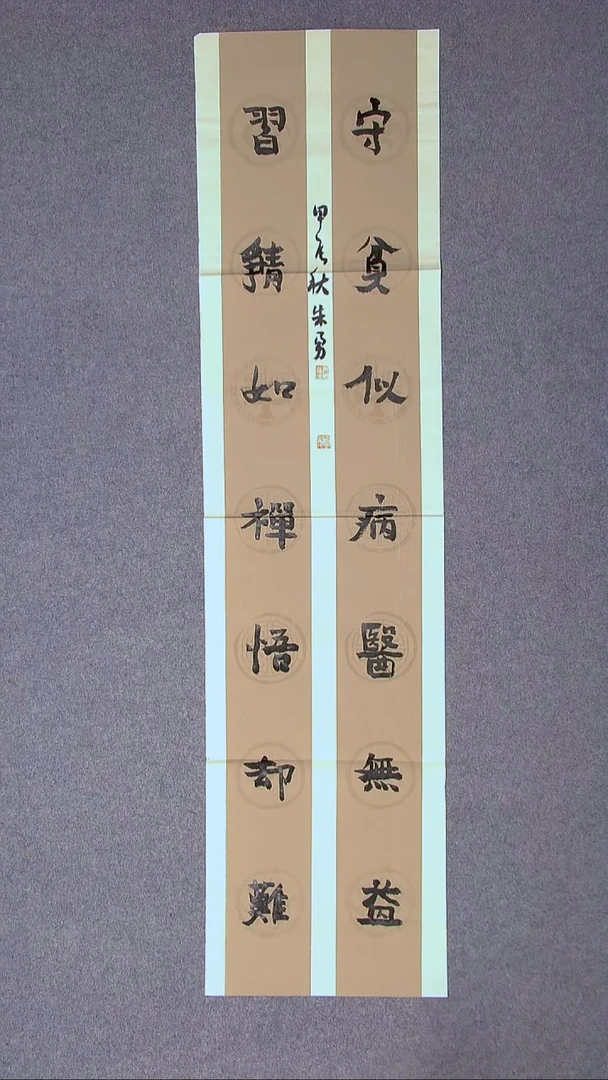 守貧似病醫無益
習靜如禪悟却難
甲辰秋朱勇